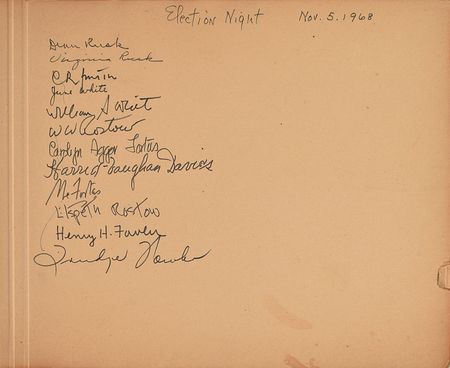 Election Night Nov. 5. 1968
Dean Rusk
Virginia Rusk
C R Smith
June White
William S White
W W Rostow
Carolyn Agger Fortas
Harriet Vaughan Davies
Abe Fortas
Elspeth Rostow
Henry H. Fowler
Trudye Fowler